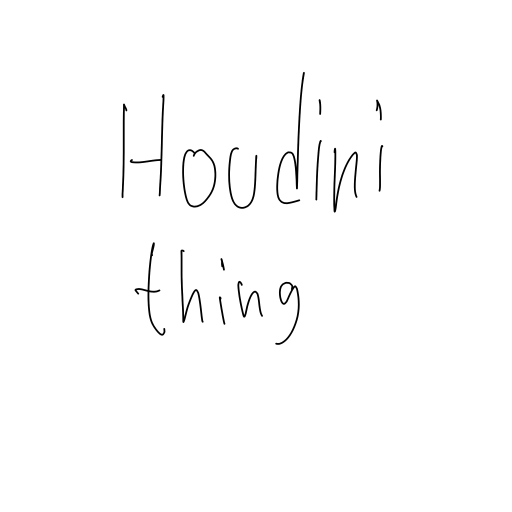 Houdini
thing